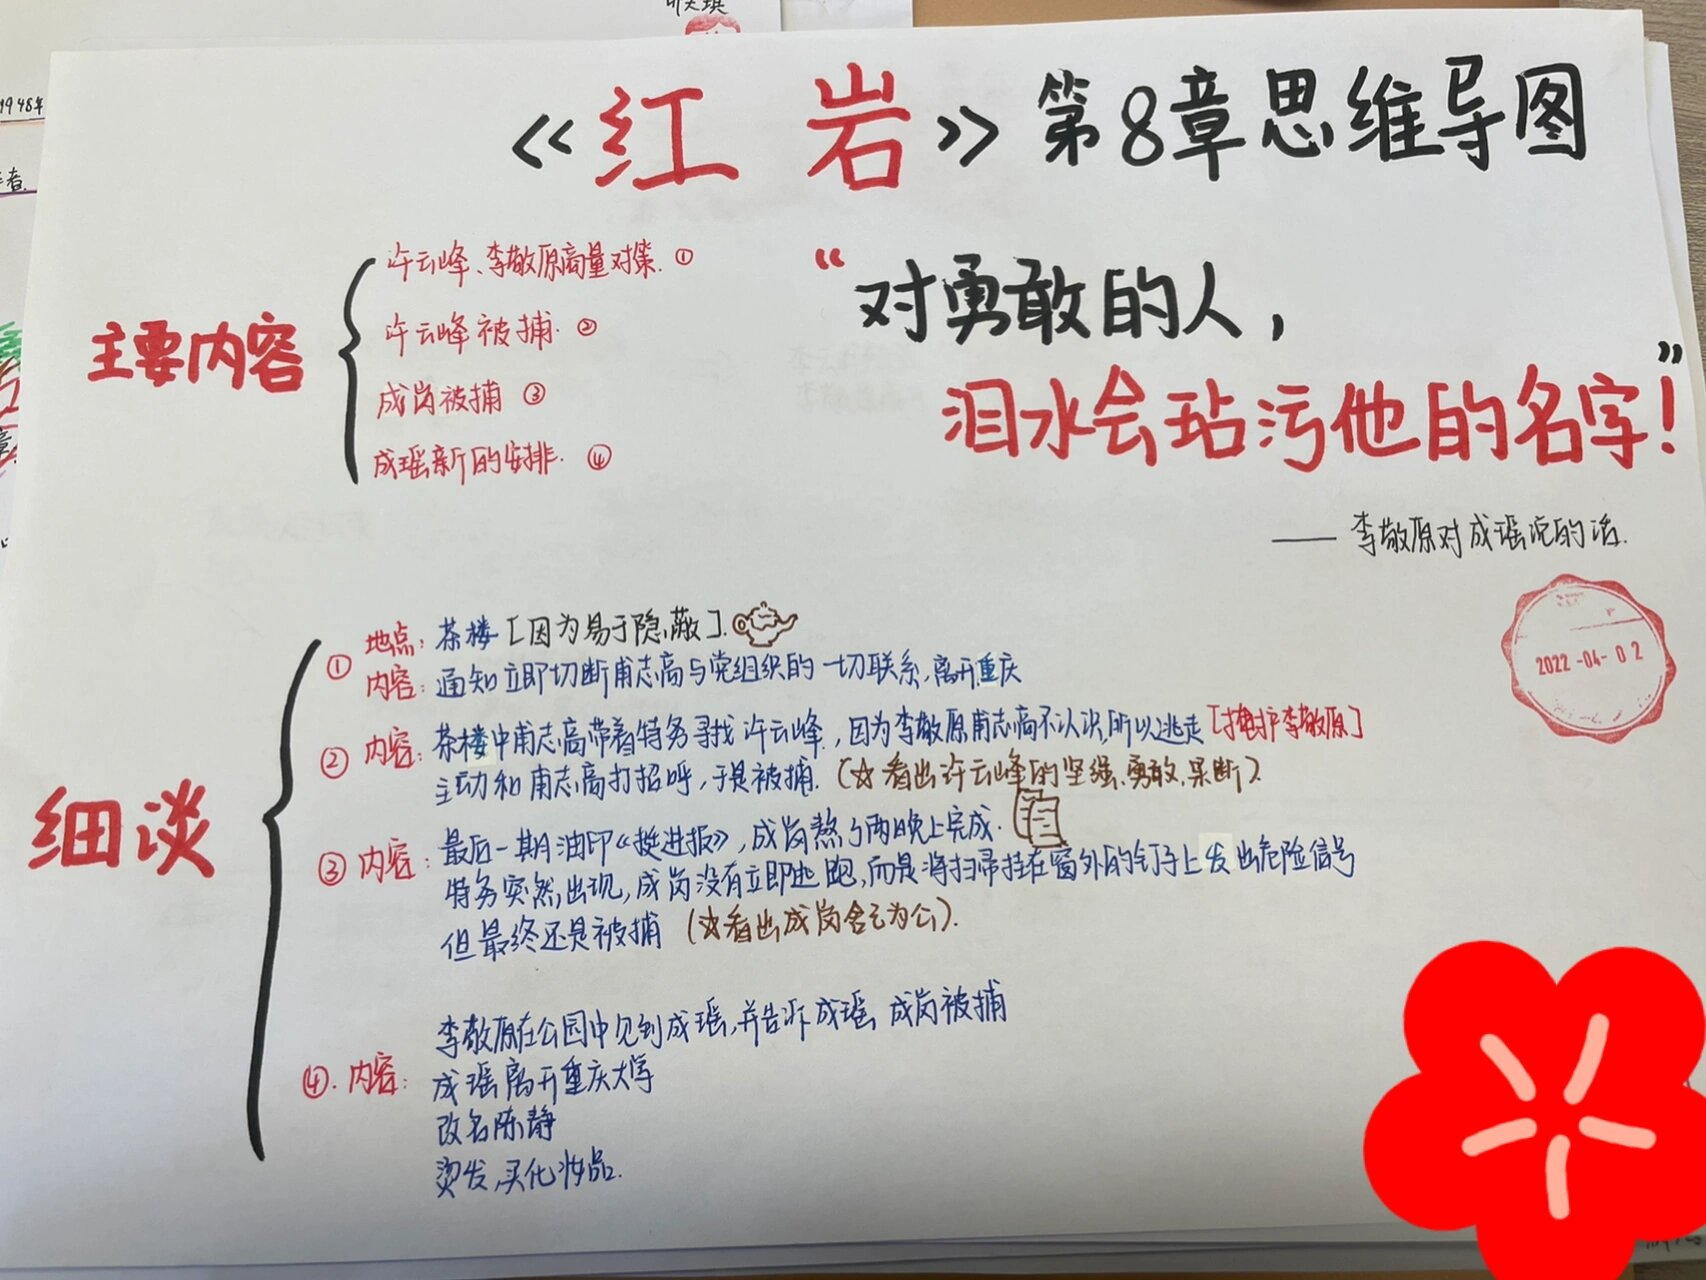 《红岩》第8章思维导图
主要内容
许云峰、李敬原商量对策. ①
许云峰被捕. ②
成岗被捕 ③
成瑶新的安排. ④
“对勇敢的人,
泪水会玷污他的名字!”
——李敬原对成瑶说的话.
2022-04-02
细谈
① 地点: 茶楼 [因为易于隐蔽].
内容: 通知立即切断甫志高与党组织的一切联系,离开重庆
② 内容: 茶楼中甫志高带着特务寻找许云峰,因为李敬原甫志高不认识,所以逃走 [掩护李敬原]
主动和甫志高打招呼,于是被捕. (☆看出许云峰的坚强、勇敢、果断).
③ 内容: 最后一期油印《挺进报》,成岗熬了两晚上完成.
特务突然出现,成岗没有立即逃跑,而是将扫帚挂在窗外的钉子上发出危险信号
但最终还是被捕 (☆看出成岗舍己为公).
④. 内容: 李敬原在公园中见到成瑶,并告诉成瑶 成岗被捕
成瑶离开重庆大学
改名陈静
烫发,买化妆品.
1948年